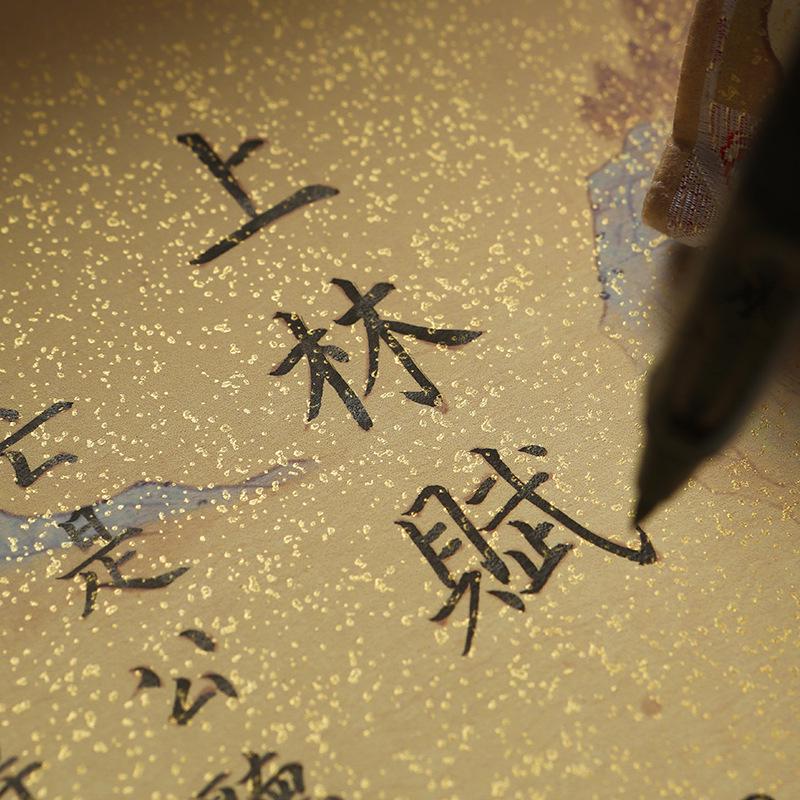 上林賦
亡是公